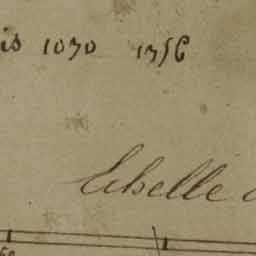 is 1030 1356
Echelle